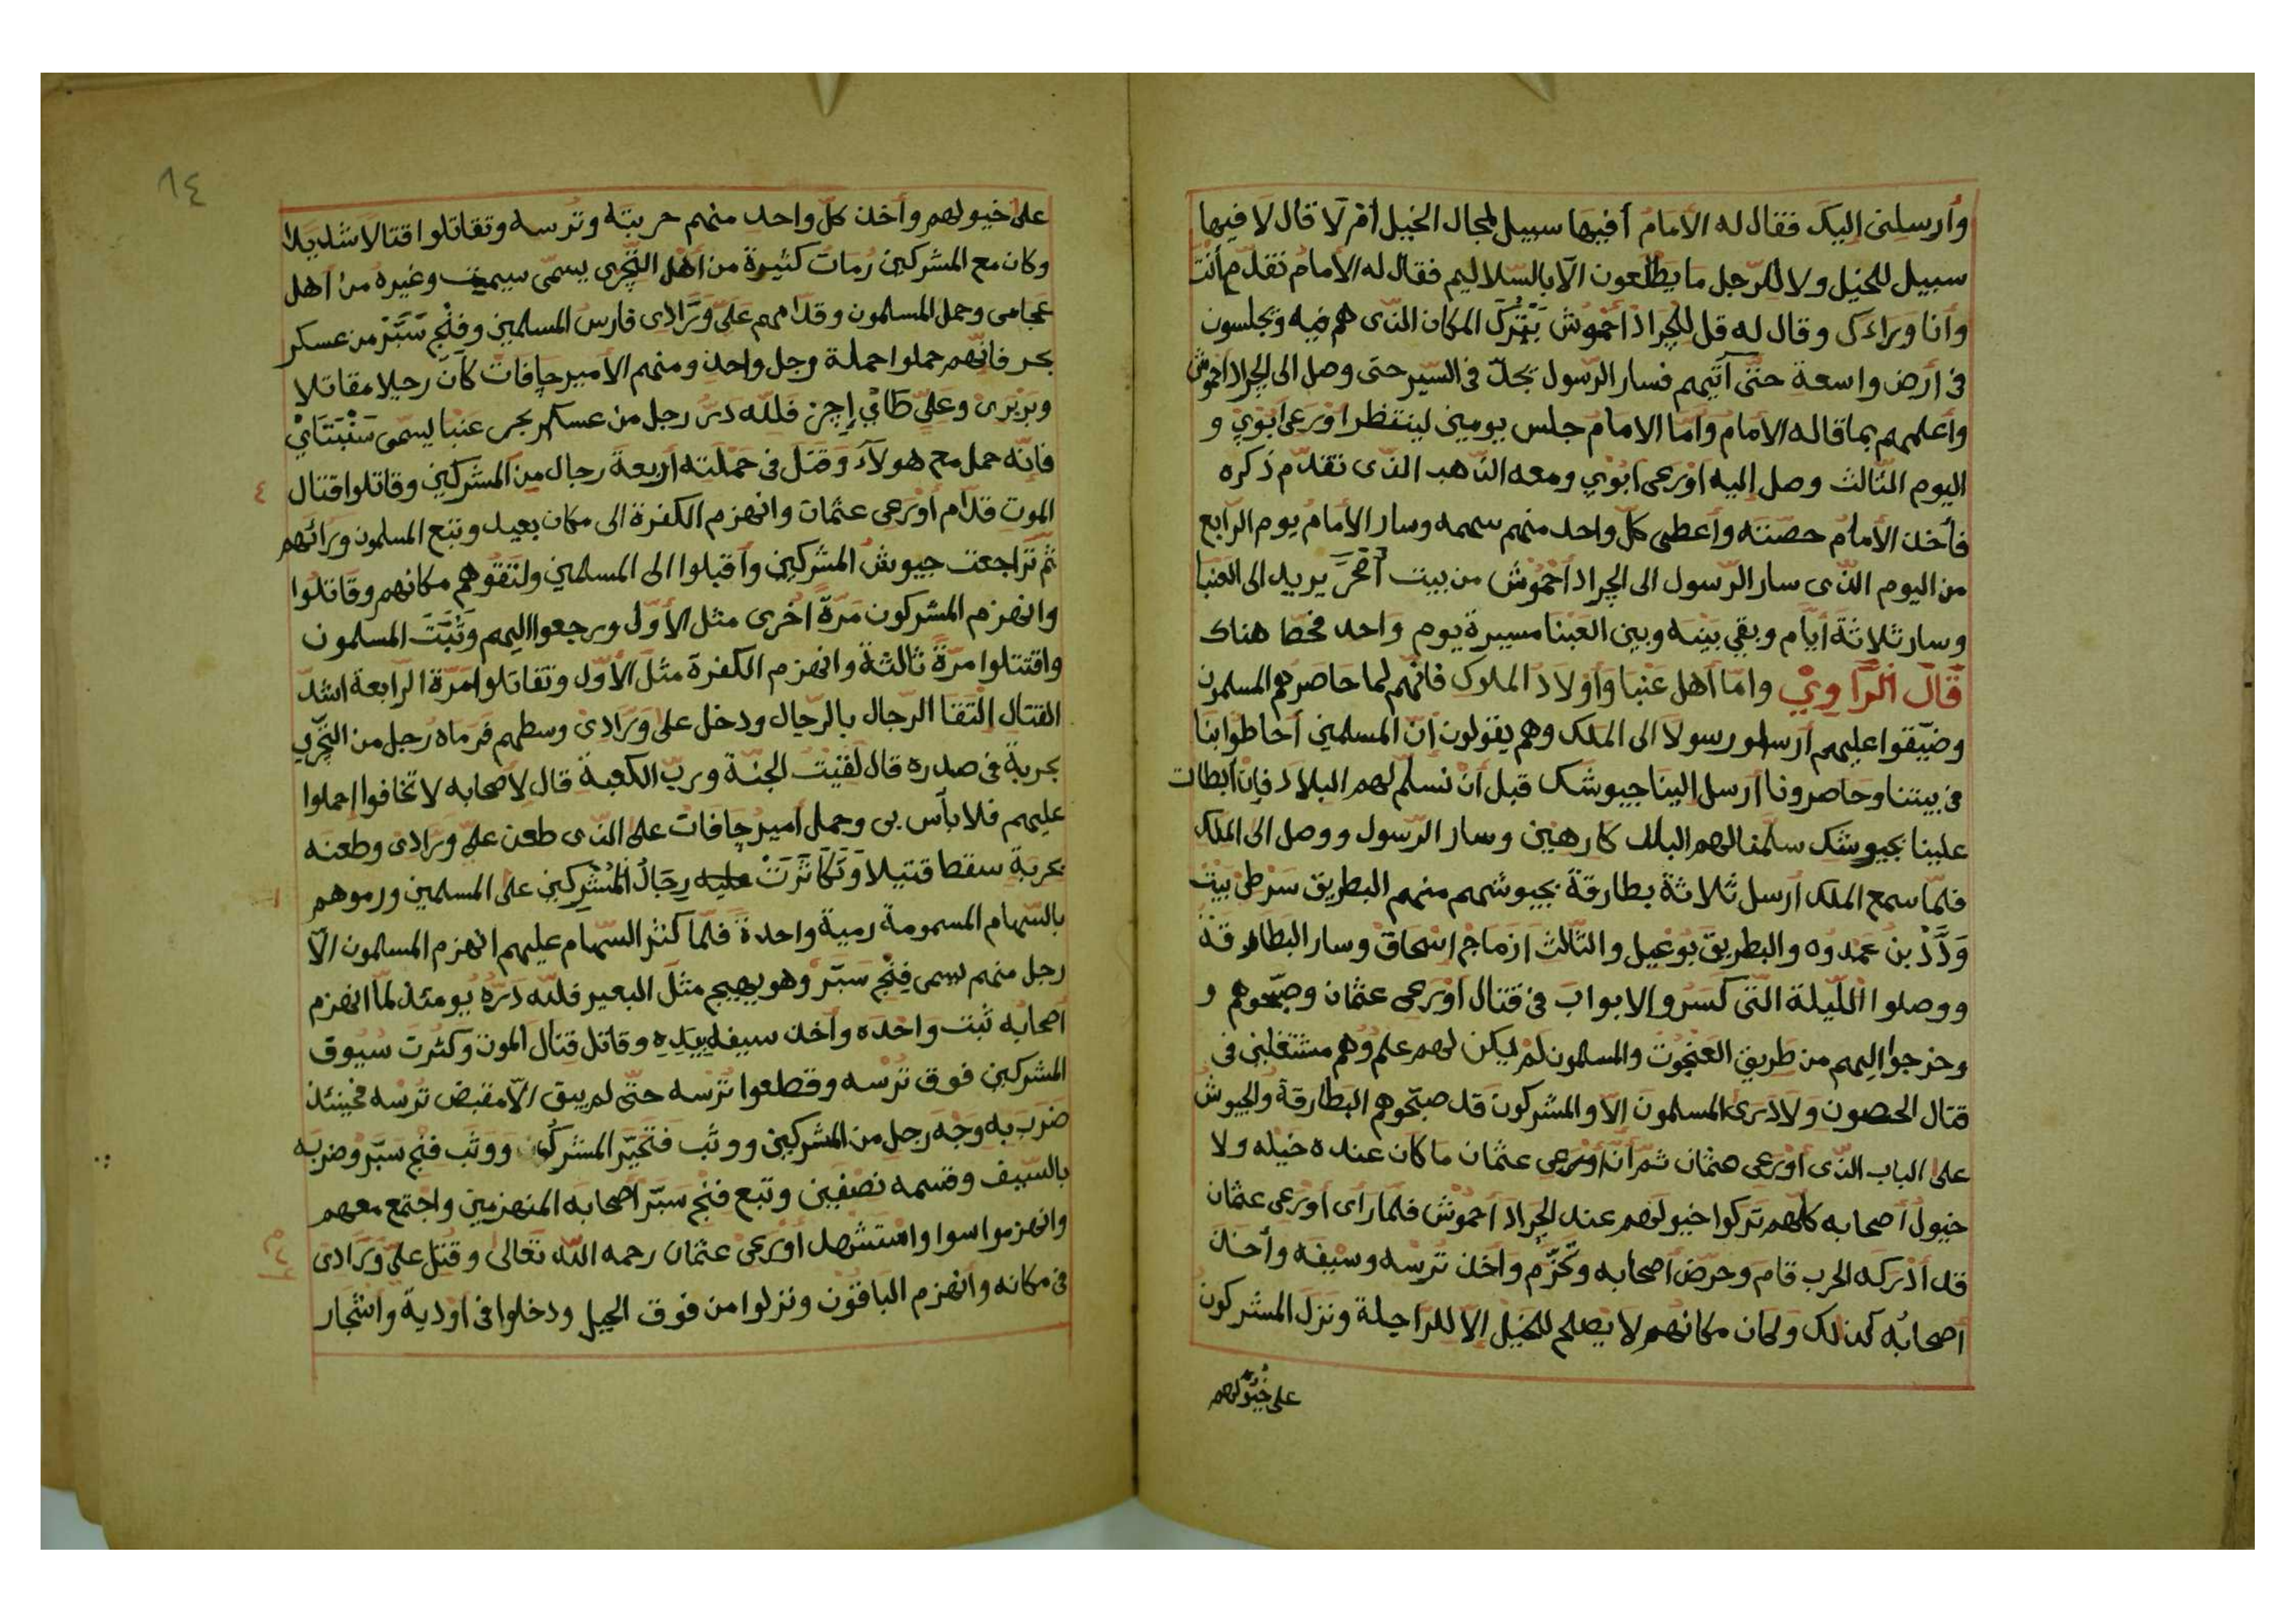 وأرسلنى إليك فقال له الأمام أفيها سبيل لمجال الخيل أم لا قال لا فيها
سبيل للخيل ولا للرّجل ما يطلعون الّا بالسّلاليم فقال له الأمام تقدّم أنت
وأنا وراءك وقال له قل للجراد أحموش يترك المكان الذى هم فيه ويجلسون
فى أرض واسعة حتّى آتيهم فسار الرّسول يجدّ فى السّير حتى وصل الى الجراد احموش
وأعلمهم بما قاله الأمام وأما الامام جلس يومين لينتظر اورعى أبوبى و
اليوم الثالث وصل إليه اورعى أبوبى ومعه الذهب الذى تقدّم ذكره
فأخذ الأمام حصّته وأعطى كلّ واحد منهم سهمه وسار الأمام يوم الرابع
من اليوم الذى سار الرّسول الى الجراد احموش من بيت أمحر يريد الى العنبا
وسار ثلاثة أيّام وبقي بينه وبين العنبا مسيرة يوم واحد فحطّا هناك
قال الرّاوي وامّا أهل عنبا وأولاد الملوك فانّهم لما حاصرهم المسلمون
وضيّقوا عليهم أرسلو رسولا الى الملك وهم يقولون انّ المسلمين أحاطوا بنا
فى بيتنا وحاصرونا أرسل إلينا جيوشك قبل أن نسلّم لهم البلاد فإن أبطات
علينا بجيوشك سلّمنا لهم البلد كارهين وسار الرّسول ووصل الى الملك
فلمّا سمع الملك أرسل ثلاثة بطارقة بجيوشهم منهم البطريق سرطى بيت
ودّد بن عمدوه والبطريق بوعيل والثّالث ازماج اسحاق وسار البطارقة
ووصلوا اللّيلة التى كسروا الابواب فى قتال أورعى عثمان وصبّحوهم و
وخرجوا إليهم من طريق العنجوت والمسلمون لم يكن لهم علم وهم مشتغلين فى
قتال الحصون ولا درى المسلمون الّا والمشركون قد صبّحوهم البطارقة والجيوش
على الباب الذى أورعى عثمان ثمّ أنّ أورعى عثمان ما كان عنده خيله ولا
خيول أصحابه كلّهم تركوا خيولهم عند الجراد أحموش فلمّا رأى أورعى عثمان
قد أدركه الحرب قام وحرّض أصحابه وتحزّم وأخذ ترسه وسيفه وأخذ
أصحابه كذلك وكان مكانهم لا يصلح للخيل الّا للرّاجلة ونزل المشركون
على خيولهم
٨٤
على خيولهم وأخذ كلّ واحد منهم حربته وترسه وتقاتلوا قتالا شديدا
وكان مع المشركين رمات كثيرة من أهل التّجرى يسمّى سيمت وغيره من أهل
عجامى وحمل المسلمون وقدّامهم علىّ ورّادى فارس المسلمين وفنج سبّر من عسكر
بحر فانّهم حملوا حملة رجل واحد ومنهم الأمير جافات كان رجلا مقاتلا
وبربرى وعلىّ طائى إجن فللّه درّ رجل من عسكر بحر عنبا يسمى سنبتاى
فانّه حمل مع هولآء وقتل فى حملته أربعة رجال من المشركين وقاتلوا قتال
٤
الموت قدّام أورعى عثمان وانهزم الكفرة الى مكان بعيد وتبع المسلمون ورائهم
ثمّ تراجعت جيوش المشركين وأقبلوا الى المسلمين ولتقوهم مكانهم وقاتلوا
وانهزم المشركون مرّة أخرى مثل الأوّل ورجعوا إليهم وثبت المسلمون
واقتتلوا مرّة ثالثة وانهزم الكفرة مثل الأوّل وتقاتلوا مرّة الرّابعة اشدّ
القتال إلتقا الرجال بالرّجال ودخل على ورادى وسطهم فرماه رجل من التجرى
بحربة فى صدره قال لقيت الجنّة وربّ الكعبة قال لأصحابه لا تخافوا إحملوا
عليهم فلا بأس بى وحمل أمير جافات على الذى طعن علىّ ورادى وطعنه
بحربة سقط قتيلا وتكاثرت عليه رجال المشركين على المسلمين ورموهم
بالسّهام المسمومة رمية واحدة فلمّا كثر السّهام عليهم انهزم المسلمون الّا
رجل منهم يسمى فنج سبّر وهو يهيج مثل البعير فللّه درّه يومئذ لمّا انهزم
أصحابه ثبت واحده وأخذ سيفه بيده وقاتل قتال الموت وكثرت سيوف
المشركين فوق ترسه وقطعوا ترسه حتّى لم يبق الّا مقبض ترسه فحينئذ
ضرب به وجه رجل من المشركين ووثب فتحيّر المشركون ووثب فنج سبّر وضربه
بالسّيف وقسمه نصفين وتبع فنج سبّر أصحابه المنهزمين واجتمع معهم
وانهزموا سوا واستشهد أورعى عثمان رحمه اللّه تعالى وقتل علىّ ورادى
فى مكانه وانهزم الباقون ونزلوا من فوق الجبل ودخلوا فى أودية واشجار